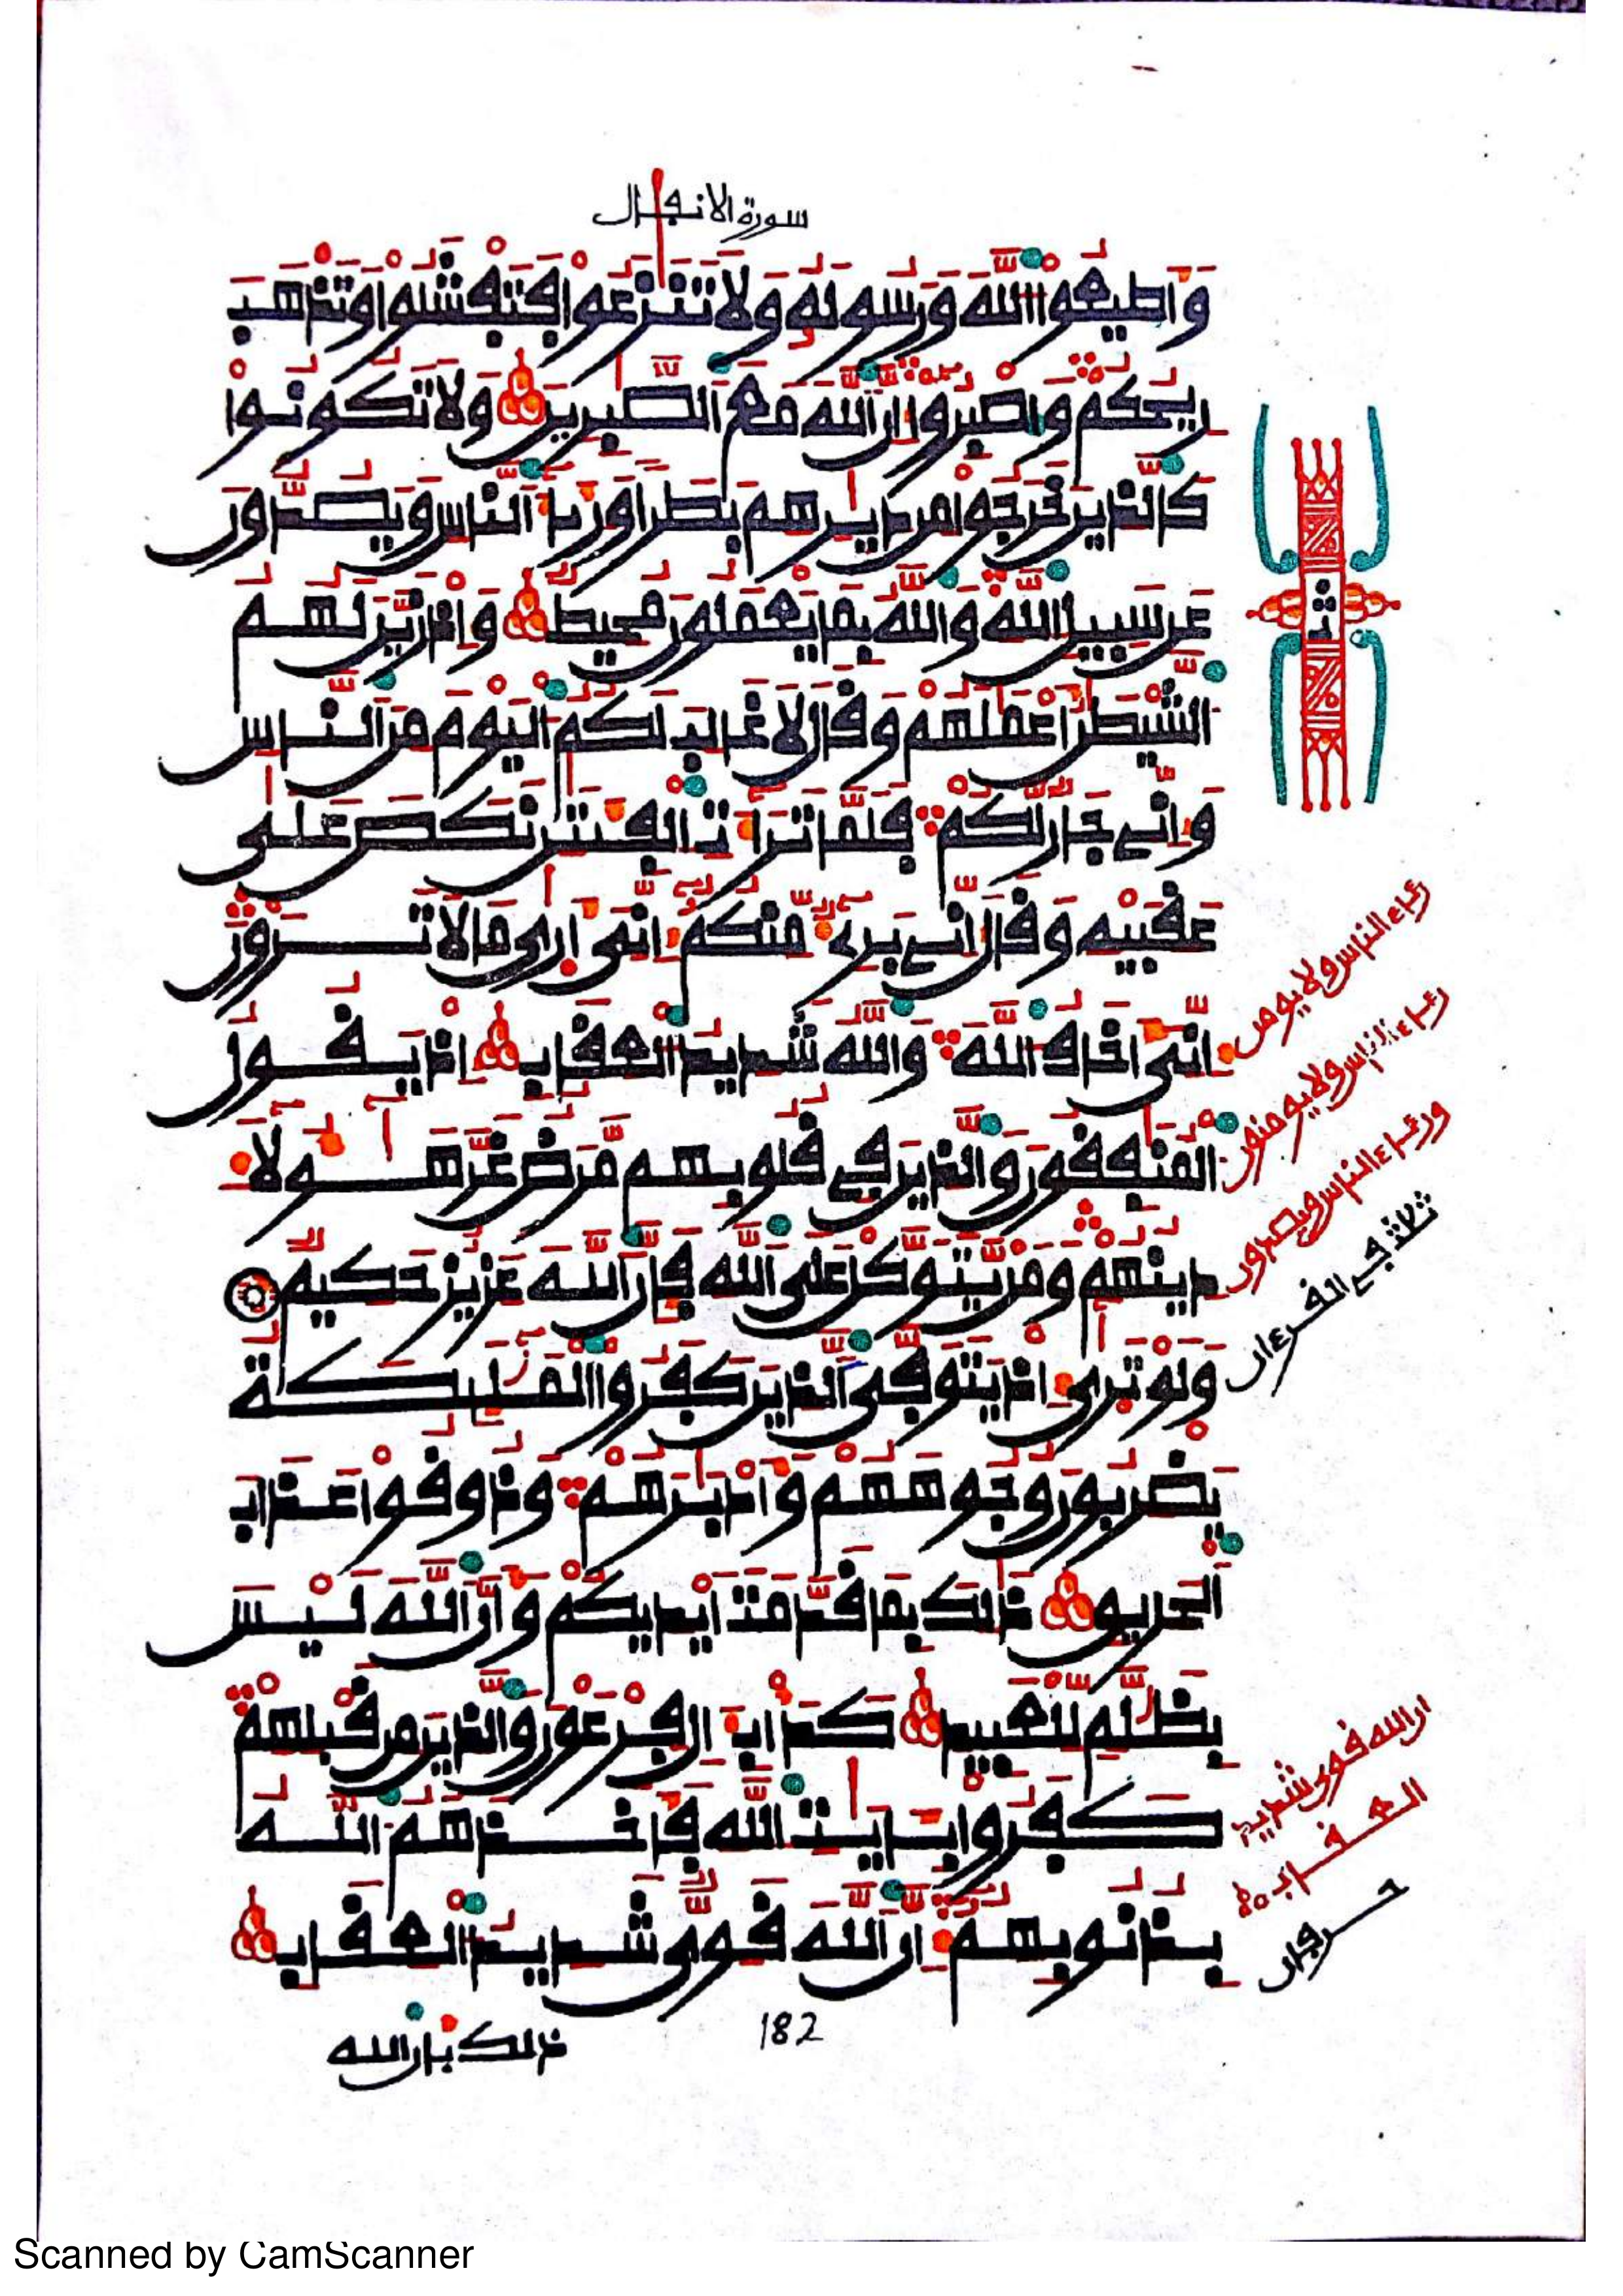 سورة الانفال
وَأَطِيعُوا اللَّهَ وَرَسُولَهُ وَلَا تَنَزَعُوا فَتَفْشَلُوا وَتَذْهَبَ
رِيحُكُمْ وَاصْبِرُوا إِنَّ اللَّهَ مَعَ الصَّبِرِينَ وَلَا تَكُونُوا
كَالَّذِينَ خَرَجُوا مِن دِيَرِهِم بَطَرًا وَرِئَاءَ النَّاسِ وَيَصُدُّونَ
عَن سَبِيلِ اللَّهِ وَاللَّهُ بِمَا يَعْمَلُونَ مُحِيطٌ وَإِذْ زَيَّنَ لَهُمُ
الشَّيْطَنُ أَعْمَلَهُمْ وَقَالَ لَا غَالِبَ لَكُمُ الْيَوْمَ مِنَ النَّاسِ
وَإِنِّي جَارٌ لَّكُمْ فَلَمَّا تَرَاءَتِ الْفِئَتَنِ نَكَصَ عَلَى
عَقِبَيْهِ وَقَالَ إِنِّي بَرِيءٌ مِّنكُمْ إِنِّيَ أَرَى مَا لَا تَرَوْنَ
إِنِّيَ أَخَافُ اللَّهَ وَاللَّهُ شَدِيدُ الْعِقَابِ إِذْ يَقُولُ
الْمُنَفِقُونَ وَالَّذِينَ فِي قُلُوبِهِم مَّرَضٌ غَرَّ هَؤُلَاءِ
دِينُهُمْ وَمَن يَتَوَكَّلْ عَلَى اللَّهِ فَإِنَّ اللَّهَ عَزِيزٌ حَكِيمٌ
وَلَوْ تَرَى إِذْ يَتَوَفَّى الَّذِينَ كَفَرُوا الْمَلَئِكَةُ
يَضْرِبُونَ وُجُوهَهُمْ وَأَدْبَرَهُمْ وَذُوقُوا عَذَابَ
الْحَرِيقِ ذَلِكَ بِمَا قَدَّمَتْ أَيْدِيكُمْ وَأَنَّ اللَّهَ لَيْسَ
بِظَلَّمٍ لِّلْعَبِيدِ كَدَأْبِ ءَالِ فِرْعَوْنَ وَالَّذِينَ مِن قَبْلِهِمْ
كَفَرُوا بِئَايَتِ اللَّهِ فَأَخَذَهُمُ اللَّهُ
بِذُنُوبِهِمْ إِنَّ اللَّهَ قَوِيٌّ شَدِيدُ الْعِقَابِ
ثمن
رئاء الناس ولا يومن
رئاء الناس ولا يومنون
ورئاء الناس ويصدون
ثلاثة في القرءان
ان الله قوي شديد
العقاب
حرفان
ذلك بان الله
182
Scanned by CamScanner